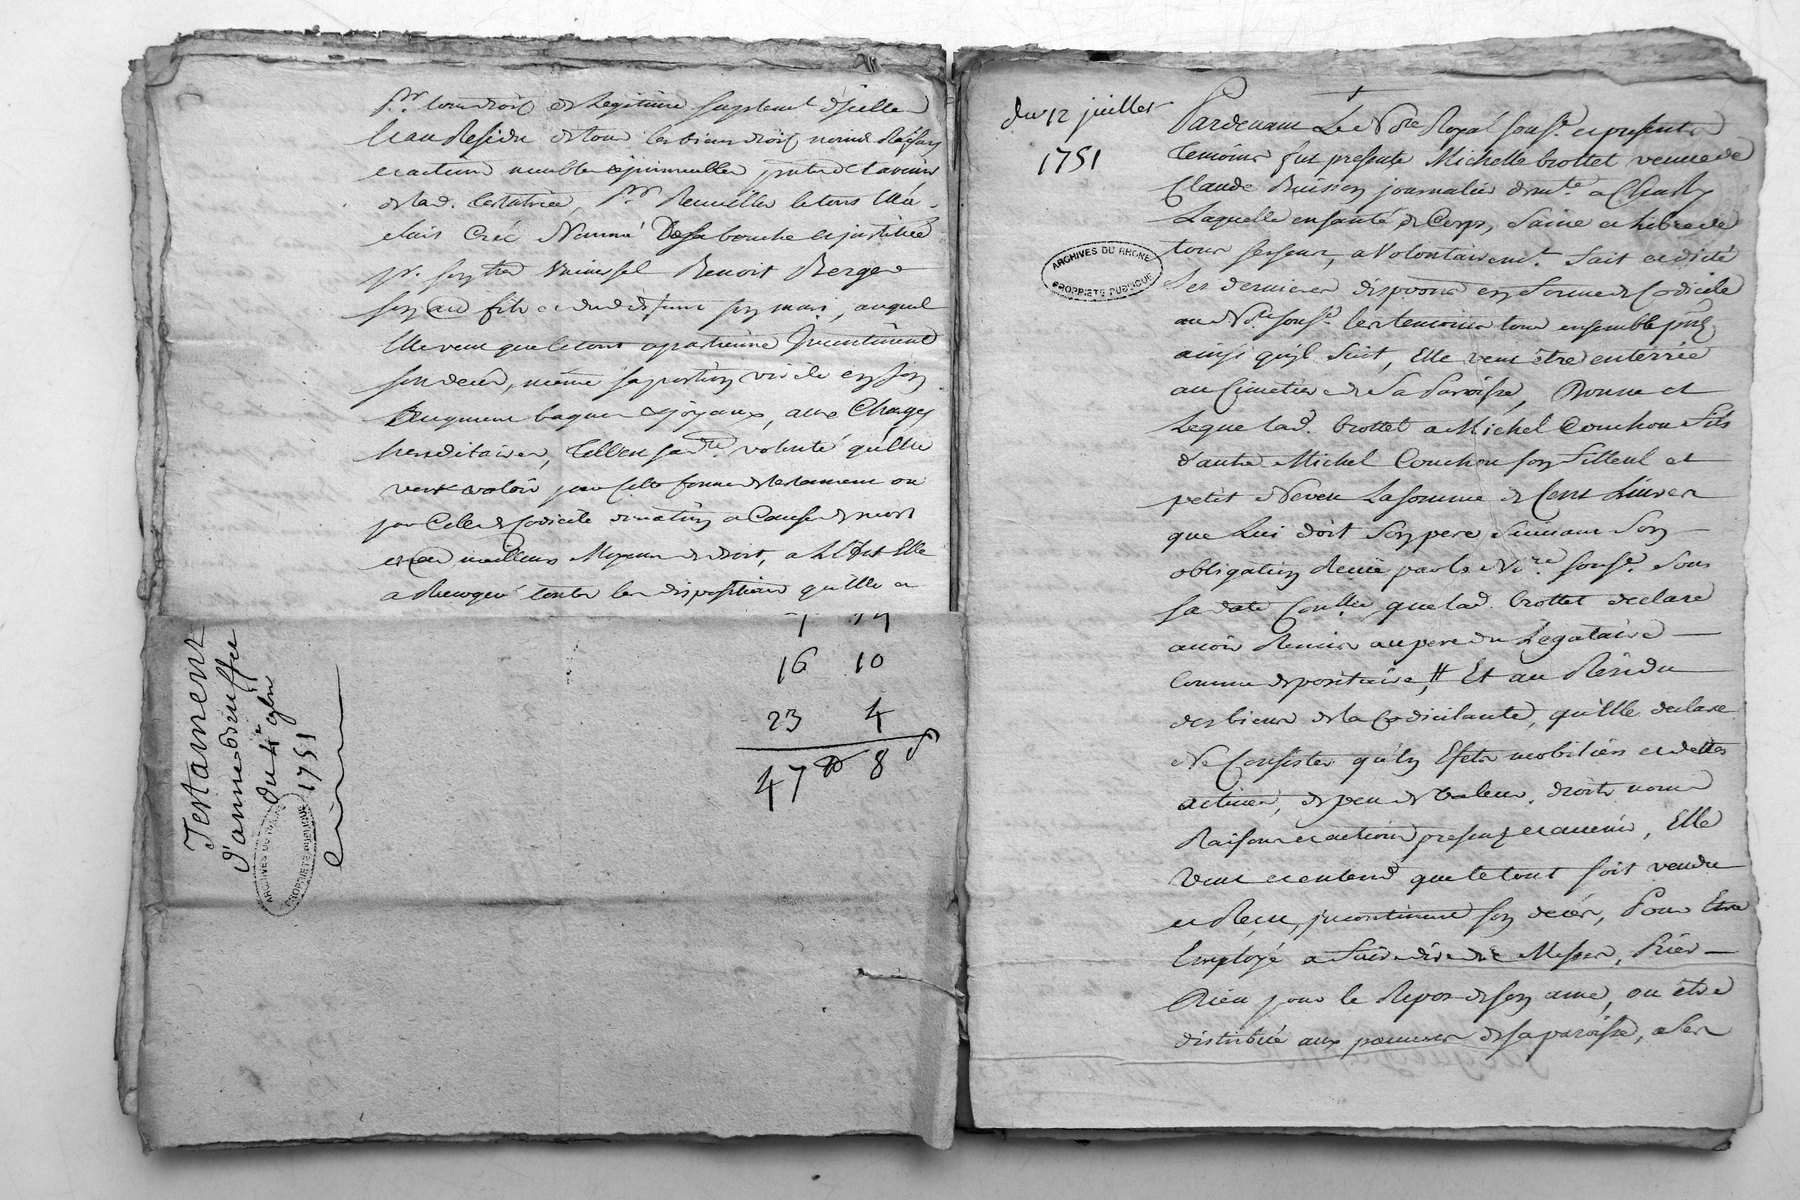 pr. tous droits de Legitime suplement d'icelle
Et au Residu de tous les biens droits noms Raisons
et actions meubles & jmmeubles presents et avenir
de la d. testatrice, pr. Recueillir le tout Elle a
fait Créé Nommé De sa bouche et jnstitué
pr. son her. Universel Benoit Berger
son fils et dud. deffunt son mari, auquel
Elle veut que le tout apartienne Jncontinent
son decès, même sa portion virile en son
augment bagues & joyaux, aux Charges
hereditaires, telle en sa dre. volonté qu'Elle
veut valoir par Celle forme de testament ou
par Celle de Codicile donation a Cause de mort
et ces meilleurs Moyens de droit, a L'Efet Elle
a Revoqué toutes les dispositions qu'Elle a
Testament
d'anne
du 4e 9bre
1751
ARCHIVES DU RHONE
PROPRIETE PUBLIQUE
16 10
23 4
47 8
du 12 juillet
1751
ARCHIVES DU RHONE
PROPRIETE PUBLIQUE
Pardevant Le Nre Royal souse. et presents
temoins fut presente Michelle brottet veuve de
Claude Buisson journalier demte. a Charly
Laquelle en santé de Corps, Saine et Libre de
tous ses sens, a Volontairemt. fait et dicté
Ses dernieres dispoons en forme de Codicile
au Nre. souse. les temoins tous ensemble pnts
ainsi qu'jl Suit, Elle veut être enterrée
au Cimetiere de Sa Paroisse, Donne et
Legue lad. brottet a Michel Couchou fils
d'autre Michel Couchou son filleul et
petit Neveu La somme de Cent Livres
que Lui doit Son pere Suivant Son
obligation Recüe par le Nre. souse. Sous
sa date que lad. brottet declare
avoir Remise au pere du Legataire
Comme depositaire, Et au Residu
des biens de la Codicilante, qu'Elle declare
Ne Consister qu'En Efets mobiliers et dettes
actives, de peu de Valeur, droits noms
Raisons et actions presents et avenir, Elle
Veut et entend que le tout soit vendu
et Reçu, jncontinent son decès, Pour Etre
Employé a faire dire de Messes, Prier
Dieu pour le Repos de son ame, ou être
distribué aux pauvres de sa paroisse, a Ses